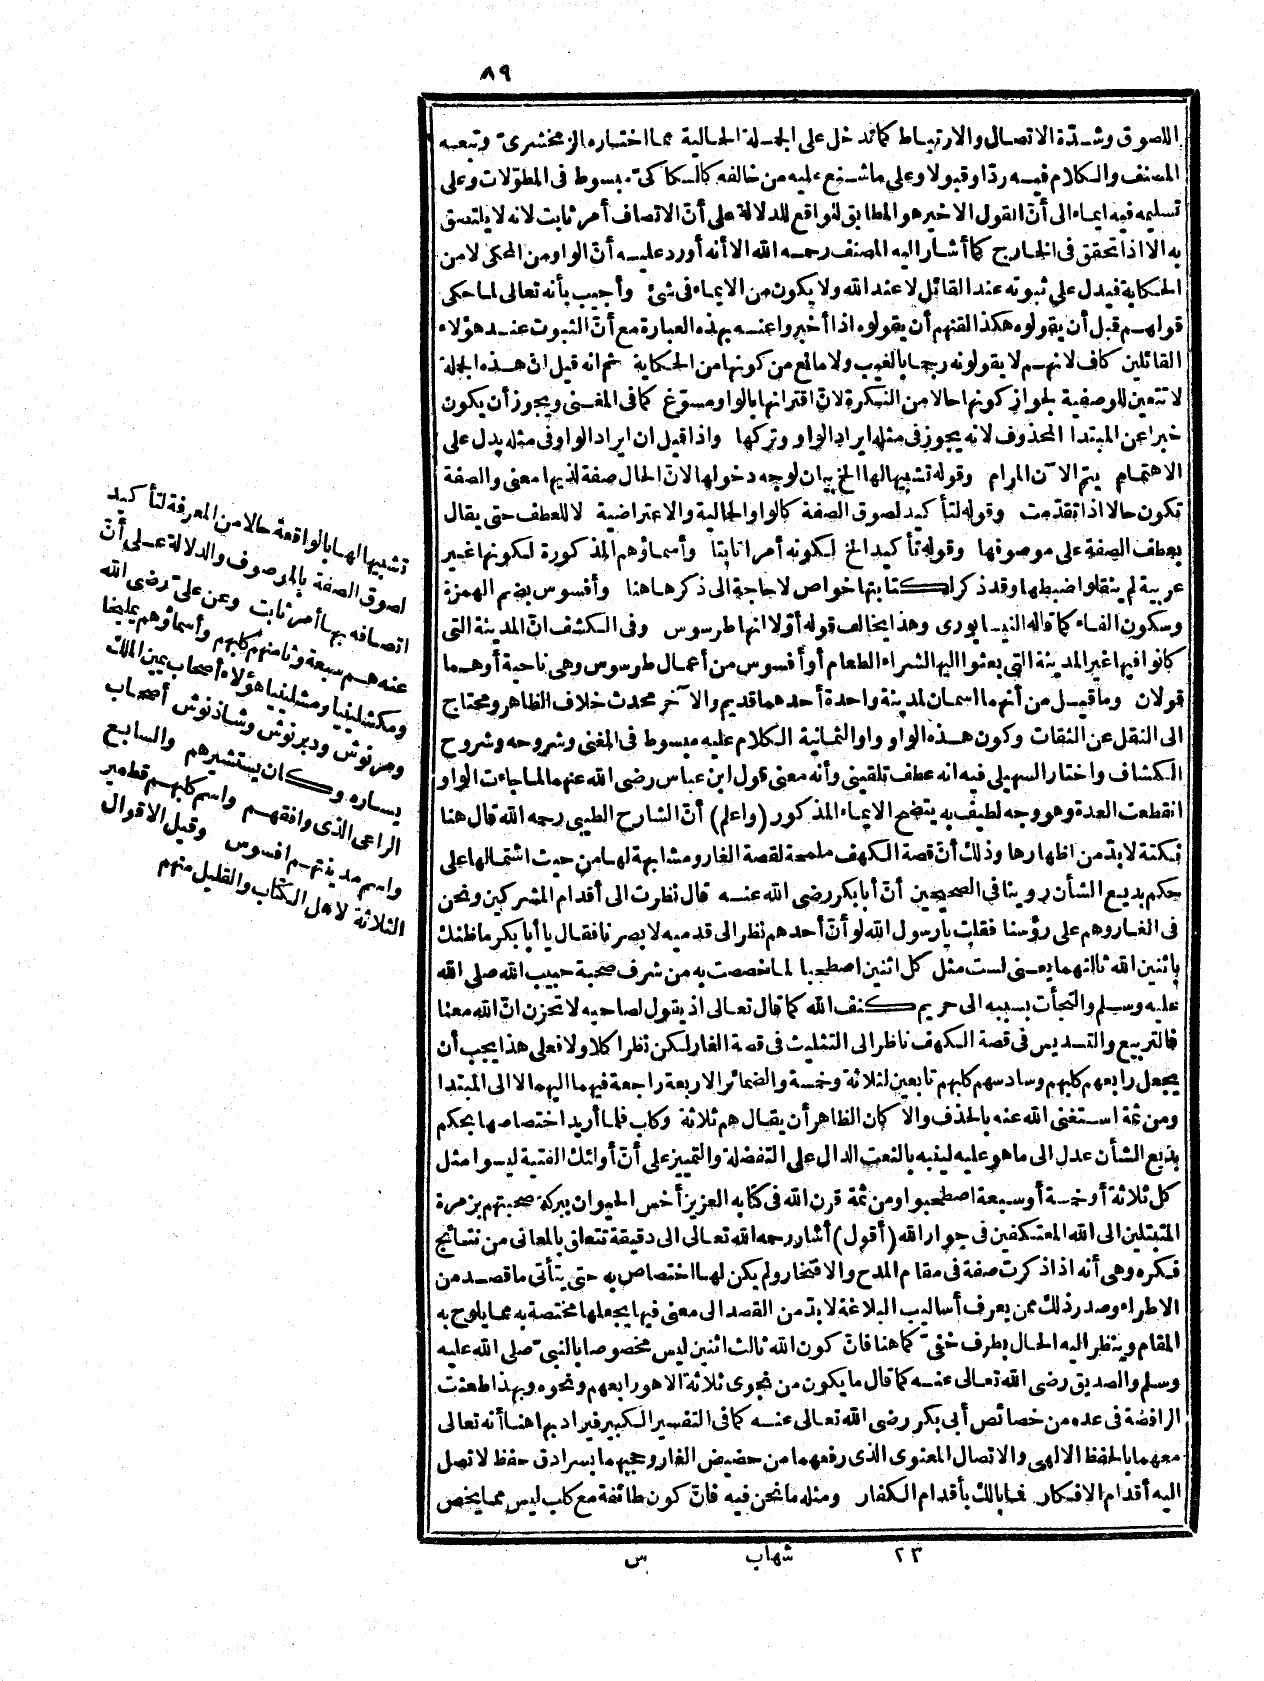 ٨٩
اللصوق وشدّة الاتصال والارتباط كما تدخل على الجملة الحالية مما اختاره الزمخشريّ وتبعه
المصنف والكلام فيه ردّا وقبولا وعلى ما شنع عليه من خالفه كالسكاكيّ مبسوط في المطوّلات وعلى
تسليمه فيه ايماء الى أنّ القول الاخير هو المطابق للواقع للدلالة على أنّ الاتصاف أمر ثابت لانه لا يلتصق
به الا اذا تحقق في الخارج كما أشار اليه المصنف رحمه الله الا أنه أورد عليه أنّ الواو من المحكى لا من
الحكاية فيدل على ثبوته عند القائل لا عند الله ولا يكون من الايماء في شئ وأجيب بأنه تعالى لما حكى
قولهم قبل أن يقولوه هكذا لقنهم أن يقولوه اذا أخبروا عنه بهذه العبارة مع أنّ الثبوت عند هؤلاء
القائلين كاف لانهم لا يقولونه رجما بالغيب ولا مانع من كونها من الحكاية ثم انه قيل انّ هذه الجملة
لا تتعين للوصفية لجواز كونها حالا من النكرة لانّ اقترانها بالواو مسوّغ كما في المغنى ويجوز أن يكون
خبرا عن المبتدا المحذوف لانه يجوز في مثله ايراد الواو وتركها واذا قيل ان ايراد الواو في مثله يدل على
الاهتمام يتم الآن المرام وقوله تشبيها لها الخ بيان لوجه دخولها لانّ الحال صفة لذيها معنى والصفة
تكون حالا اذا تقدّمت وقوله لتأكيد لصوق الصفة كالواو الحالية والاعتراضية لا للعطف حتى يقال
بعطف الصفة على موصوفها وقوله تأكيد الخ لكونه أمرا ثابتا وأسماؤهم المذكورة لكونها غير
عربية لم ينقلوا ضبطها وقد ذكر لكتابتها خواص لا حاجة الى ذكرها هنا وأفسوس بضم الهمزة
وسكون الفاء كما قاله النيسابورى وهذا يخالف قوله أوّلا انها طرسوس وفي الكشف انّ المدينة التي
كانوا فيها غير المدينة التي بعثوا اليها لشراء الطعام أو أفسوس من أعمال طرسوس وهي ناحية أو هما
قولان وما قيل من أنهما اسمان لمدينة واحدة أحدهما قديم والآخر محدث خلاف الظاهر ومحتاج
الى النقل عن الثقات وكون هذه الواو واو الثمانية الكلام عليه مبسوط في المغنى وشروحه وشروح
الكشاف واختار السهيلى فيه انه عطف تلقيني وأنه معنى قول ابن عباس رضى الله عنهما لما جاءت الواو
انقطعت العدة وهو وجه لطيف به يتضح الايماء المذكور (واعلم) أنّ الشارح الطيبى رحمه الله قال هنا
نكتة لا بدّ من اظهارها وذلك أنّ قصة الكهف ملمعة لقصة الغار ومشابهة لها من حيث اشتمالها على
حكم بديع الشأن روينا في الصحيحين أنّ أبا بكر رضى الله عنه قال نظرت الى أقدام المشركين ونحن
في الغار وهم على رؤسنا فقلت يا رسول الله لو أنّ أحدهم نظر الى قدميه لابصرنا فقال يا أبا بكر ما ظنك
باثنين الله ثالثهما يعنى لست مثل كل اثنين اصطحبا لما خصصت به من شرف صحبة حبيب الله صلى الله
عليه وسلم والتجأت بسببه الى حريم كنف الله كما قال تعالى اذ يقول لصاحبه لا تحزن انّ الله معنا
فالتربيع والتسديس في قصة الكهف ناظر الى التثليث في قصة الغار لكن نظرا كلا ولا فعلى هذا يجب أن
يجعل رابعهم كلبهم وسادسهم كلبهم تابعين لثلاثة وخمسة والضمائر الاربعة راجعة فيهما اليهما لا الى المبتدا
ومن ثمة استغنى الله عنه بالحذف والا كان الظاهر أن يقال هم ثلاثة وكلب فلما أريد اختصاصها بحكم
بديع الشأن عدل الى ما هو عليه لينبه بالنعت الدال على التفضلة والتمييز على أنّ أولئك الفتية ليسوا مثل
كل ثلاثة أو خمسة أو سبعة اصطحبوا ومن ثمة قرن الله في كتابه العزيز أخس الحيوان ببركة صحبتهم بزمرة
المتبتلين الى الله المعتكفين في جوار الله (أقول) أشار رحمه الله تعالى الى دقيقة تتعلق بالمعاني من نتائج
فكره وهي أنه اذا ذكرت صفة في مقام المدح والافتخار ولم يكن لها اختصاص به حتى يتأتى ما قصد من
الاطراء وصدر ذلك ممن يعرف أساليب البلاغة لا بدّ من القصد الى معنى فيها يجعلها مختصة به مما يلوح به
المقام وينظر اليه الحال بطرف خفيّ كما هنا فانّ كون الله ثالث اثنين ليس مخصوصا بالنبيّ صلى الله عليه
وسلم والصديق رضى الله تعالى عنه كما قال ما يكون من نجوى ثلاثة الا هو رابعهم ونحوه وبهذا طعنت
الرافضة في عده من خصائص أبى بكر رضى الله تعالى عنه كما في التفسير الكبير فيراد بها هنا أنه تعالى
معهما بالحفظ الالهى والاتصال المعنوى الذى رفعهما من حضيض الغار وحجبهما بسرادق حفظ لا تصل
اليه أقدام الافكار فما بالك بأقدام الكفار ومثله ما نحن فيه فانّ كون طائفة مع كلب ليس مما يخص
تشبيها لها بالواقعة حالا من المعرفة لتأكيد
لصوق الصفة بالموصوف والدلالة على أنّ
اتصافه بها أمر ثابت وعن علىّ رضى الله
عنه هم سبعة وثامنهم كلبهم وأسماؤهم يمليخا
ومكشلينيا ومشلينيا هؤلاء أصحاب يمين الملك
ومرنوش ودبرنوش وشاذنوش أصحاب
يساره وكان يستشيرهم والسابع
الراعى الذى وافقهم واسم كلبهم قطمير
واسم مدينتهم افسوس وقيل الاقوال
الثلاثة لاهل الكتاب والقليل منهم
٢٣ شهاب س